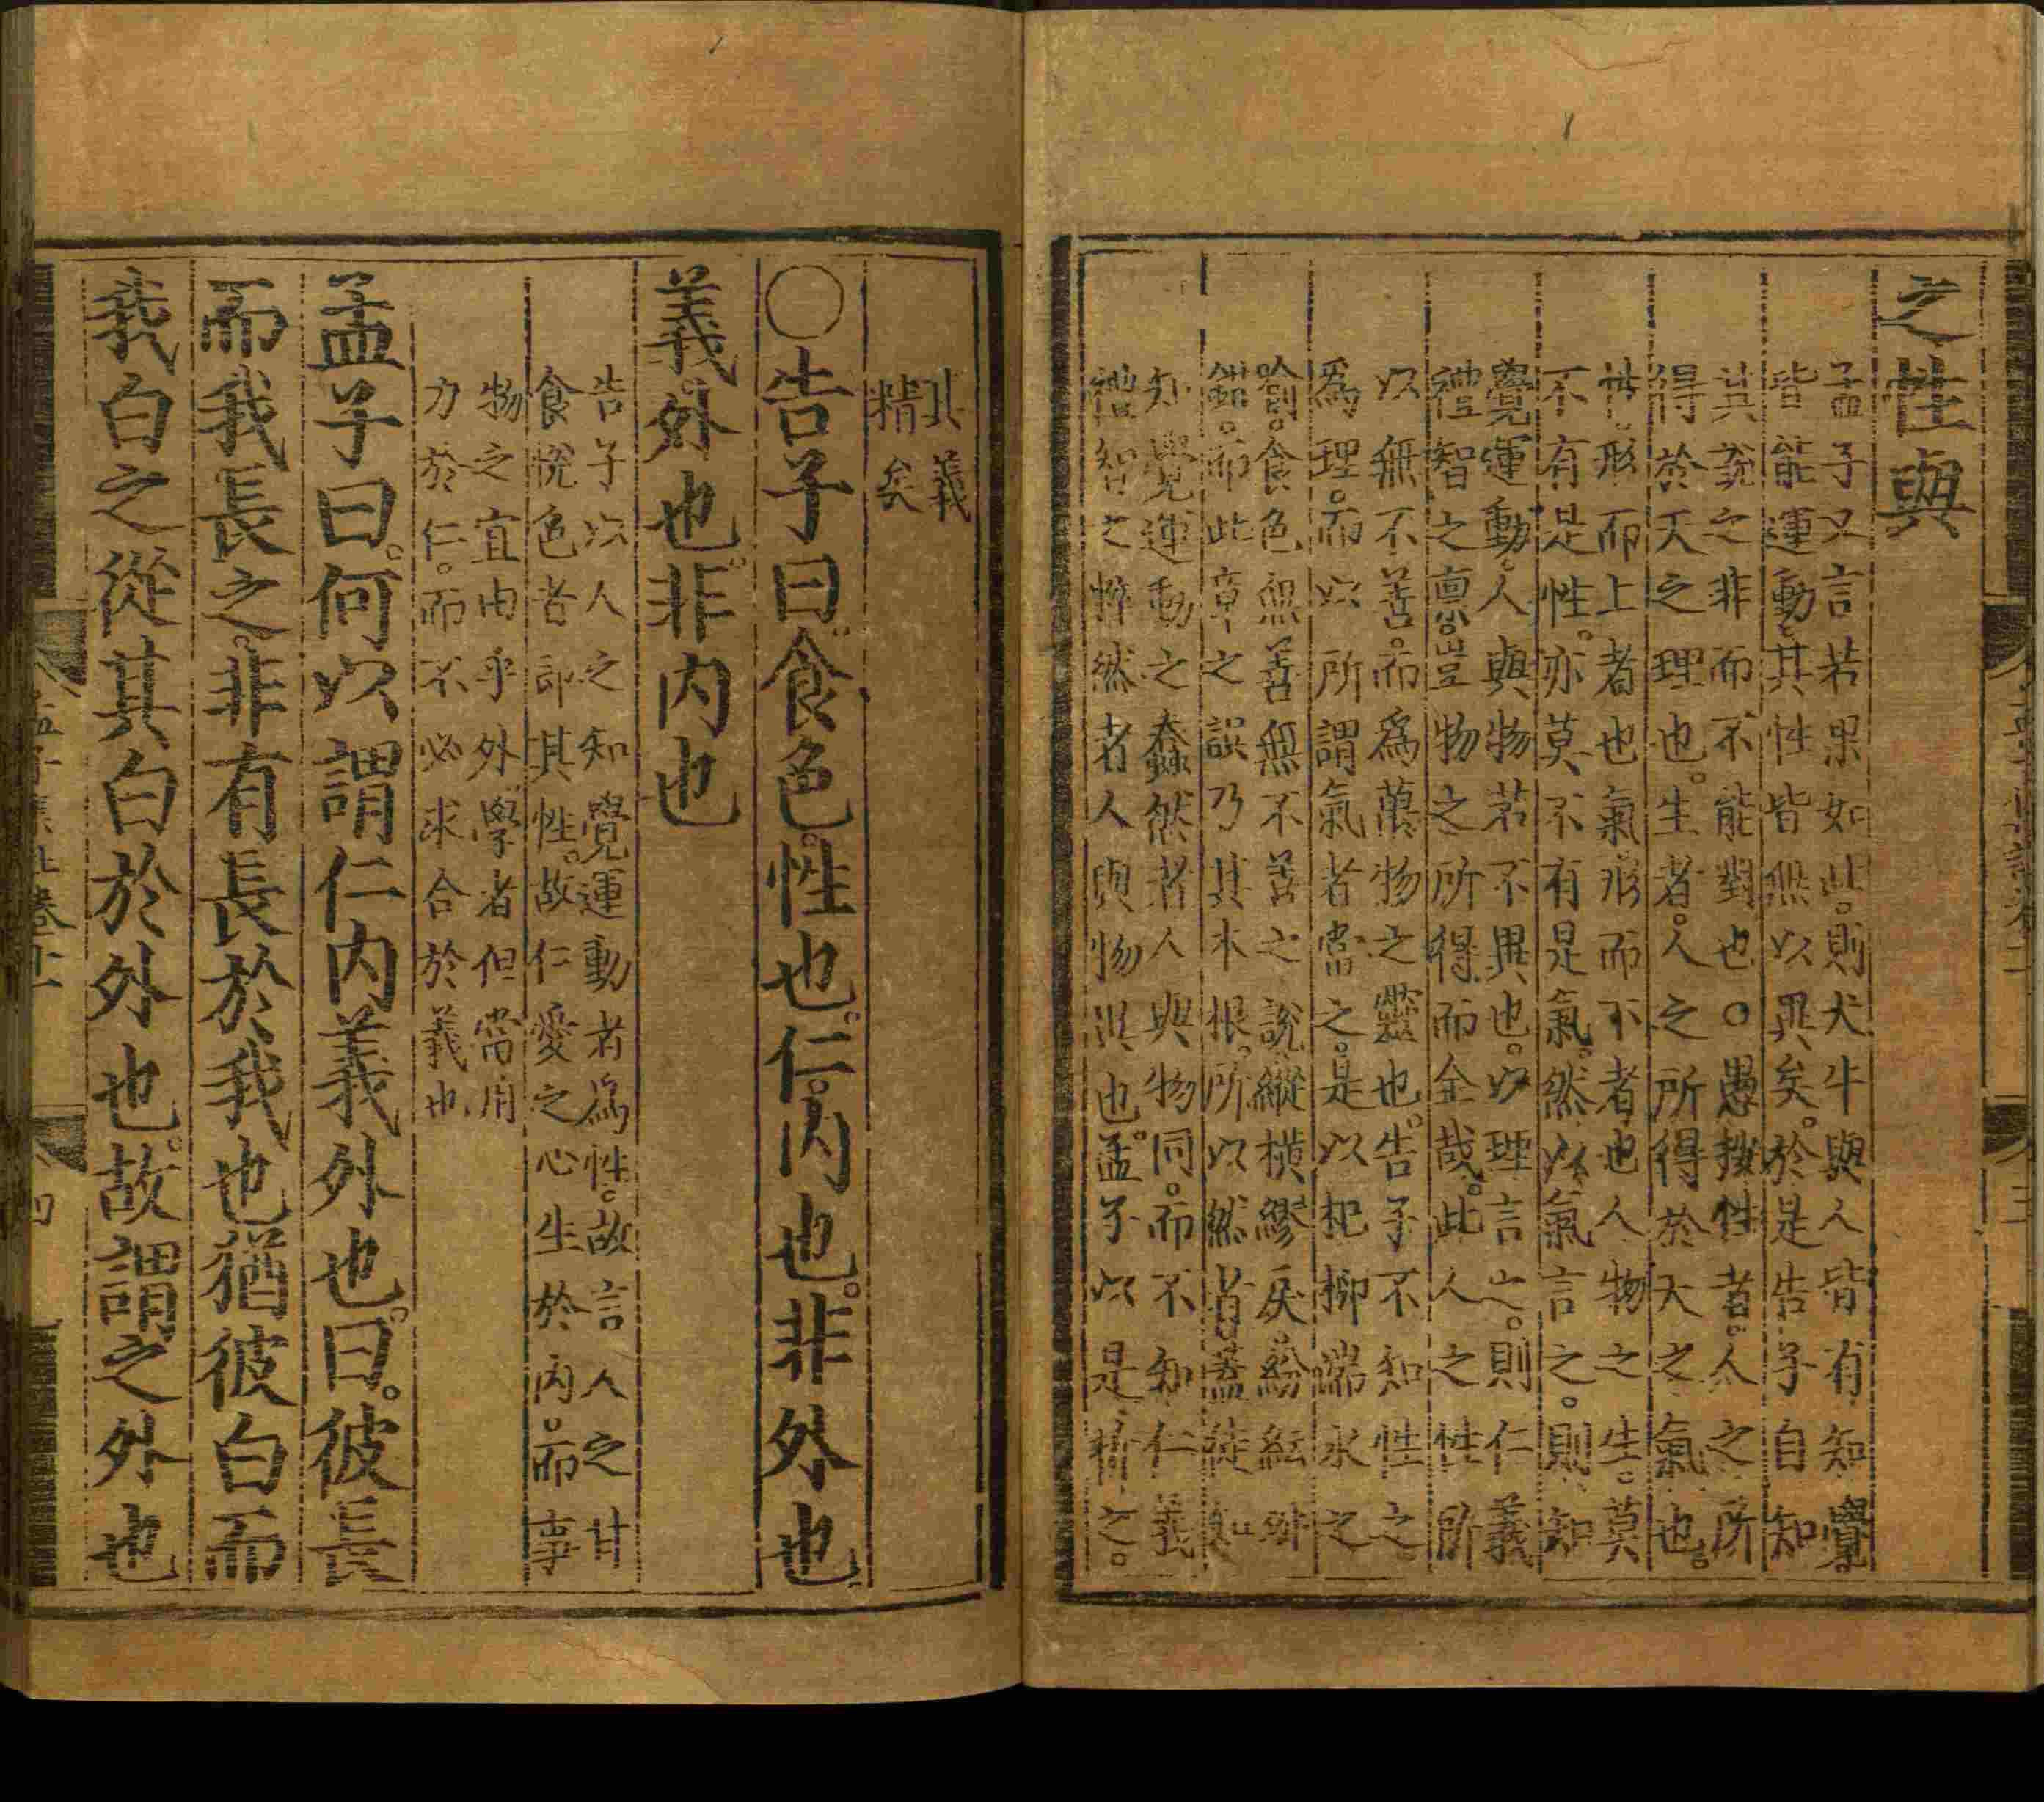 之性與
孟子又言若果如此。則犬牛與人皆有知覺。
皆能運動。其性皆無以異矣。於是告子自知
其說之非而不能對也○愚按性者。人之所
得於天之理也。生者。人之所得於天之氣也。
性。形而上者也氣形而下者也人物之生。莫
不有是性。亦莫不有是氣。然以氣言之。則知
覺運動。人與物若不異也。以理言之。則仁義
禮智之稟。豈物之所得而全哉。此人之性所
以無不善。而爲萬物之靈也。告子不知性之
爲理。而以所謂氣者當之。是以杞柳湍水之
喻。食色無善無不善之說縱橫繆戾。紛紜舛
錯。而此章之誤乃其本根。所以然者。蓋徒知
知覺運動之蠢然者人與物同。而不知仁義
禮智之粹然者人與物異也。孟子以是折之。
其義
精矣
○告子曰食色。性也。仁。內也。非外也
義。外也。非內也
告子以人之知覺運動者爲性。故言人之甘
食悅色者即其性。故仁愛之心生於內。而事
物之宜由乎外。學者但當用
力於仁。而不必求合於義也
孟子曰。何以謂仁內義外也。曰。彼長
而我長之。非有長於我也猶彼白而
我白之從其白於外也。故謂之外也
孟子集註卷十一
四